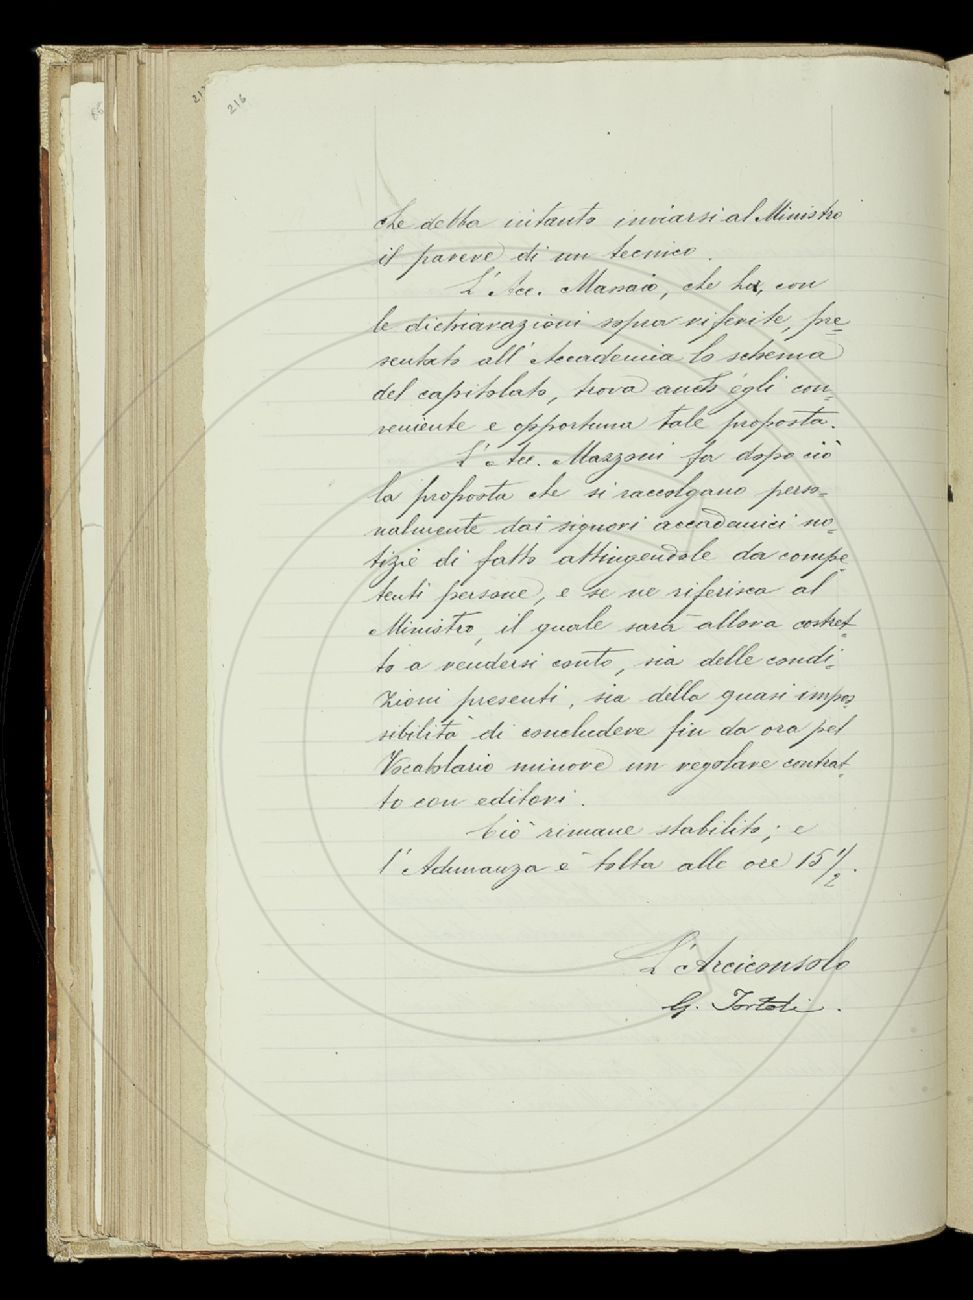 216
che debba intanto inviarsi al Ministro
il parere di un tecnico.
L'Acc. Massaio, che ha, con
le dichiarazioni sopra riferite, pre=
sentato all'Accademia lo schema
del capitolato, trova anch'egli con=
veniente e opportuna tale proposta.
L'Acc. Mazzoni fa dopo ciò
la proposta che si raccolgano perso=
nalmente dai signori accademici no=
tizie di fatto attingendole da compe=
tenti persone, e se ne riferisca al
Ministro, il quale sarà allora costret=
to a rendersi conto, sia delle condi=
zioni presenti, sia della quasi impos
sibilità di concludere fin da ora pel
Vocabolario minore un regolare contrat=
to con editori.
Ciò rimane stabilito; e
l'Adunanza è tolta alle ore 15 1/2.
L'Arciconsolo
G. Tortoli.